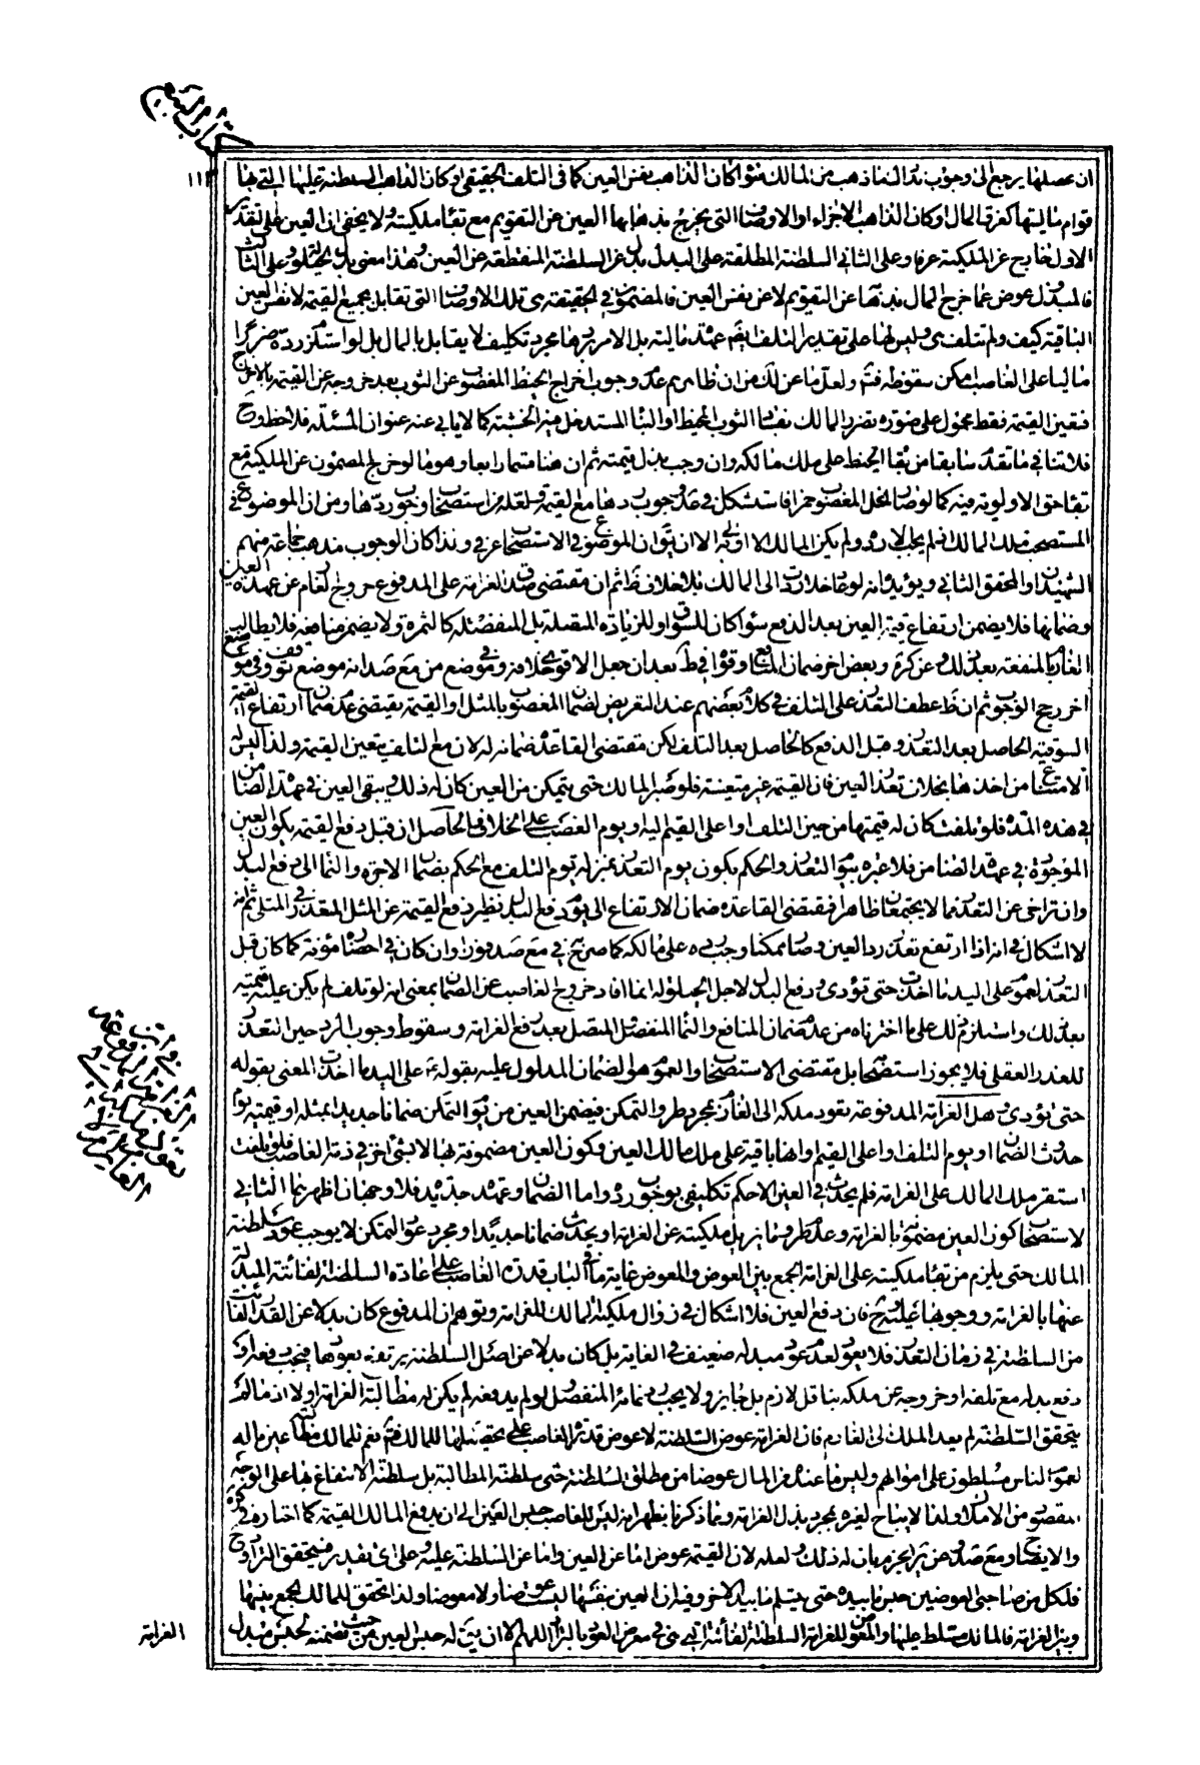 كتاب البيع
١١٣
ان محصلها يرجع الى وجوب تدارك ما ذهب من المالك سواء كان الذاهب نفس العين كما في التلف الحقيقي او كان الذاهب السلطنة عليها التي بها
قوام ماليتها كغرق المال او كان الذاهب الاجزاء او الاوصاف التي يخرج بذهابها العين عن التقويم مع بقاء ملكيته ولا يخفى ان العين على تقدير
الاول خارج عن الملكية عرفا وعلى الثاني السلطنة المطلقة على البدل بدل عن السلطنة المنقطعة عن العين وهذا معنى بدل الحيلولة وعلى الثالث
فالمبذول عوض عما خرج المال بذهابه عن التقويم لا عن نفس العين فالمضمون في الحقيقة هي تلك الاوصاف التي تقابل بجميع القيمة لا نفس العين
الباقية كيف ولم تتلف هي وليس لها على تقدير التلف ايضا عهدة مالية بل الامر بردها مجرد تكليف لا يقابل بالمال بل لو استلزم رده ضررا
ماليا على الغاصب امكن سقوطه فتأمل ولعل ما عن لك من ان ظاهرهم عدم وجوب اخراج الخيط المغصوب عن الثوب بعد خروجه عن القيمة بالاخراج
فتعين القيمة فقط محمول على صورة تضرر المالك بفساد الثوب المخيط او البناء المستدخل فيه الخشبة كما لا يأبى عنه عنوان المسألة فلاحظ وحينئذ
فلا تنافي ما تقدم سابقا من بقاء الخيط على ملك مالكه وان وجب بذل قيمته ثم ان هنا قسما رابعا وهو ما لو خرج المضمون عن الملكية مع
بقاء حق الاولوية فيه كما لو صار الخل المغصوب خمرا فاستشكل في عد وجوب ردها مع القيمة ولعله من استصحاب وجوب ردها ومن ان الموضوع في
المستصحب ملك المالك اذ لم يجب الا رده ولم يكن المالك الا اولى به الا ان يقال ان الموضوع في الاستصحاب عرفي ولذا كان الوجوب مذهب جماعة منهم
الشهيدان والمحقق الثاني ويؤيده انه لو عاد خلا ردت الى المالك بلا خلاف ظاهر ثم ان مقتضى صدق الغرامة على المدفوع خروج الغارم عن عهدة العين
وضمانها فلا يضمن ارتفاع قيمة العين بعد الدفع سواء كان للسوق او للزيادة المتصلة بل المنفصلة كالثمرة ولا يضمن منافعه فلا يطالب
الغارم بالمنفعة بعد ذلك وعن كرة وبعض اخر ضمان المنافع وقواه في ط بعد ان جعل الاقوى خلافه وفي موضع من مع صد انه موضع توقف وفي موضع
اخر رجح الوجوب ثم ان ظاهر عطف التعذر على التلف في كلام بعضهم عند التعرض لضمان المغصوب بالمثل او القيمة يقتضي عدم ضمان ارتفاع القيمة
السوقية الحاصل بعد التعذر وقبل الدفع كالحاصل بعد التلف لكن مقتضى القاعدة ضمانه له لان مع التلف يتعين القيمة ولذا ليس له
الامتناع من اخذها بخلاف تعذر العين فان القيمة غير متعينة فلو صبر المالك حتى يتمكن من العين كان له ذلك ويبقى العين في عهدة الضامن
في هذه المدة فلو تلفت كان له قيمتها من حين التلف او اعلى القيم اليه او يوم الغصب على الخلاف والحاصل ان قبل دفع القيمة يكون العين
الموجودة في عهدة الضامن فلا عبرة بيوم التعذر والحكم بكون يوم التعذر بمنزلة يوم التلف مع الحكم بضمان الاجرة والنماء الى دفع البدل
وان تراخى عن التعذر مما لا يجتمعان ظاهرا فمقتضى القاعدة ضمان الارتفاع الى يوم دفع البدل نظير دفع القيمة عن المثل المتعذر في المثلي ثم انه
لا اشكال في انه اذا ارتفع تعذر رد العين وصار ممكنا وجب رده على مالكه كما صرح به في مع صد فورا وان كان في احضاره مؤنة كما كان قبل
التعذر لعموم على اليد ما اخذت حتى تؤدي ودفع البدل لاجل الحيلولة انما افاد خروج الغاصب عن الضمان بمعنى انه لو تلف لم يكن عليه قيمته
بعد ذلك واستلزم ذلك على ما اخترناه من عدم ضمان المنافع والنماء المنفصل والمتصل بعد دفع الغرامة وسقوط وجوب الرد حين التعذر
للعذر العقلي فلا يجوز استصحابه بل مقتضى الاستصحاب والعموم هو الضمان المدلول عليه بقوله ع على اليد ما اخذت المعنى بقوله
حتى تؤدي وهل الغرامة المدفوعة يعود ملكه الى الغارم بمجرد طرو التمكن فيضمن العين من يوم التمكن ضمانا جديدا بمثله او قيمته يوم
حدوث الضمان او يوم التلف او اعلى القيم او انها باقية على ملك مالك العين وكون العين مضمونة بها لا بشئ اخر في ذمة الغاصب فلو تلفت
استقر ملك المالك على الغرامة فلم يحدث في العين الا حكم تكليفي بوجوب رده واما الضمان وعهدة جديدة فلا وجهان اظهرهما الثاني
لاستصحاب كون العين مضمونة بالغرامة وعدم طرو ما يزيل ملكيته عن الغرامة او يحدث ضمانا جديدا ومجرد عود التمكن لا يوجب عود سلطنة
المالك حتى يلزم من بقاء ملكيته على الغرامة الجمع بين العوض والمعوض غاية ما في الباب قدرة الغاصب على اعادة السلطنة الفائتة المبدلة
عنها بالغرامة ووجوبها عليه وح فان دفع العين فلا اشكال في زوال ملكية المالك للغرامة وتوهم ان المدفوع كان بدلا عن القدر الفائت
من السلطنة في زمان التعذر فلا يعود لعدم عود مبدله ضعيف في الغاية بل كان بدلا عن اصل السلطنة يرتفع بعودها فيجب دفعه او
دفع بدله مع تلفه او خروجه عن ملكه بناقل لازم بل جايز ولا يجب رد نمائه المنفصل ولو لم يدفعه لم يكن له مطالبة الغرامة اولا اذ ما لم
يتحقق السلطنة لم يعد الملك الى الغارم فان الغرامة عوض السلطنة لا عوض قدرة الغاصب على تحصيلها للمالك فتأمل نعم للمالك مطالبة عين ماله
لعموم الناس مسلطون على اموالهم وليس ما عنده من المال عوضا من مطلق السلطنة حتى سلطنة المطالبة بل سلطنة الانتفاع بها على الوجه
المقصود من الاملاك ولذا لا يباح لغيره بمجرد بذل الغرامة ومما ذكرنا يظهر انه ليس للغاصب حبس العين الى ان يدفع المالك القيمة كما اختاره في كرة
والايضاح ومع صد وعن ئر الجزم بان له ذلك ولعله لان القيمة عوض اما عن العين واما عن السلطنة عليه وعلى اي تقدير فيتحقق التراد وح
فلكل من صاحبي العوضين حبس ما بيده حتى يتسلم ما بيد الاخر وفيه ان العين بنفسها ليست عوضا ولا معوضا ولذا تحقق للمالك الجمع بينها
وبين الغرامة فالمالك مسلط عليها والمعوض للغرامة السلطنة الفائتة التي هي في معرض العود بالتراد اللهم الا ان يقال له حبس العين من حيث تضمنه لحبس مبدل
الغرامة